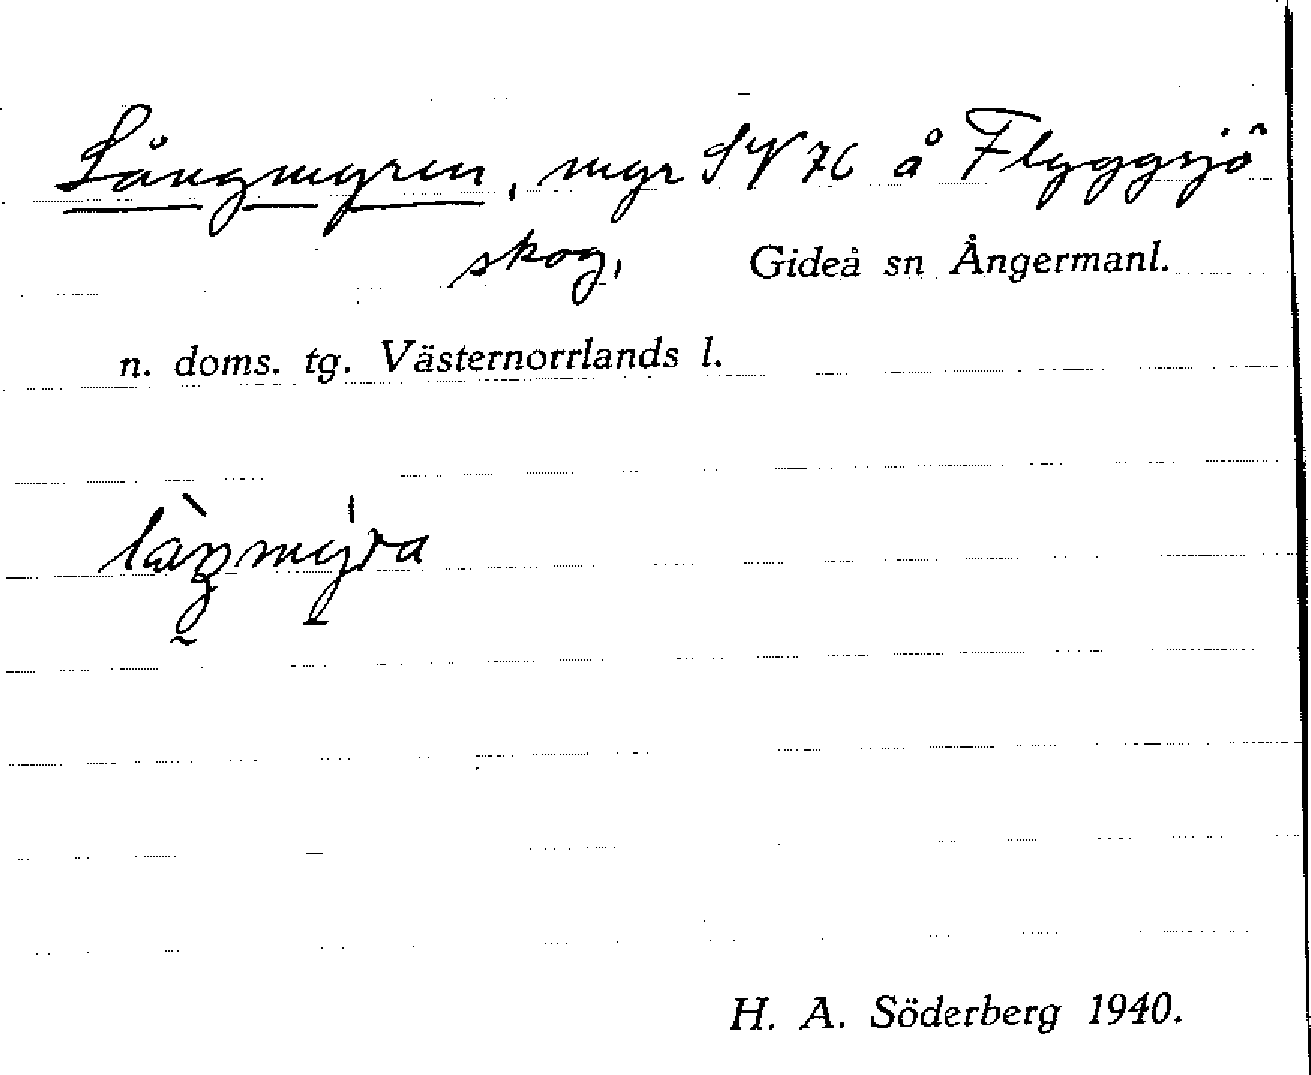 Långmyren, myr SV 76 å Flyggsjö
skog, Gideå sn Ångermanl.
n. doms. tg. Västernorrlands l.
H. A. Söderberg 1940.